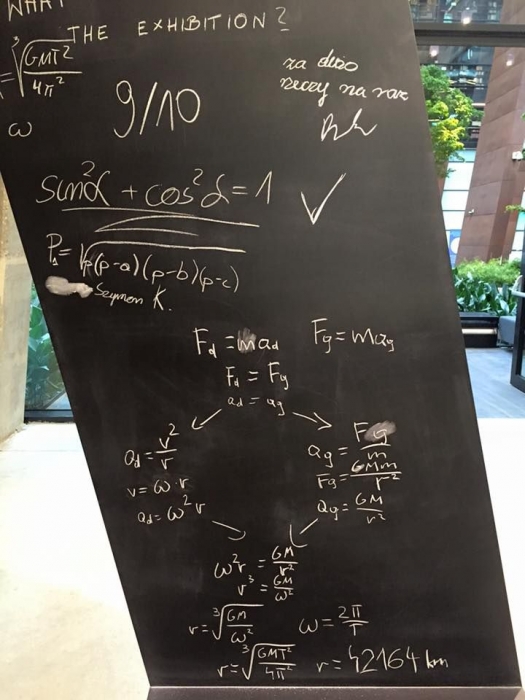 WHAT
THE EXHIBITION?
= ∛(GMT²/4π²)
za dużo
rzeczy na raz
ω
9/10
sin²α + cos²α = 1 ✓
P = √p(p-a)(p-b)(p-c)
Szymon K.
F_d = ma_d F_g = ma_g
F_d = F_g
a_d = a_g
a_d = v²/r
v = ω·r
a_d = ω²r
a_g = F_g/m
F_g = GMm/r²
a_g = GM/r²
ω²r = GM/r²
r³ = GM/ω²
r = ∛(GM/ω²) ω = 2π/T
r = ∛(GMT²/4π²) r = 42164 km